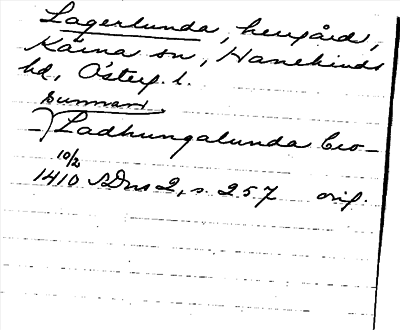 Lagerlunda, herrgård,
Kärna sn, Hanekinds
hd, Österg. l.
Sunnan
Ladhungalunda bro-
10/2
1410 SDns 2, s. 257 orig.